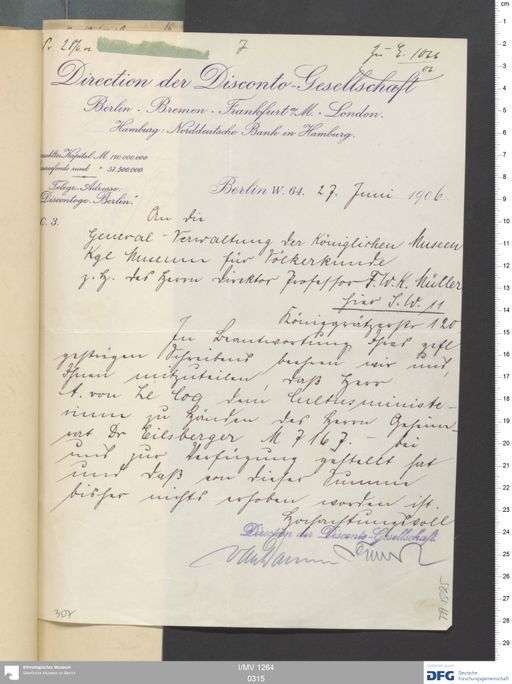 Pr. 28/6. 06.
7
Zu E. 1066
06
Direction der Disconto-Gesellschaft
Berlin. Bremen. Frankfurt a/M. London.
Hamburg: Norddeutsche Bank in Hamburg.
Kapital M. 170.000.000
rund " 57.500.000
Telegr. Adresse:
Discontoge, Berlin."
C. 3.
Berlin W. 64. 27. Juni 1906
An die
General-Verwaltung der Königlichen Museen
Kgl Museum für Völkerkunde
z. H. des Herrn Direktor Professor F. W. K. Müller
hier S.W. 11
Königgrätzerstr 120
In Beantwortung Ihres gefl
gestrigen Schreibens beehren wir uns,
Ihnen mitzuteilen, daß Herr
A. von Le Coq dem Cultusministe-
rium zu Händen des Herrn Geheim-
rat Dr Eilsberger M 7167.- bei
uns zur Verfügung gestellt hat
und daß von dieser Summe
bisher nichts erhoben worden ist.
Hochachtungsvoll
Direction der Disconto-Gesellschaft
307
Ethnologisches Museum
Staatliche Museen zu Berlin
I/MV 1264
0315
DFG Deutsche
Forschungsgemeinschaft